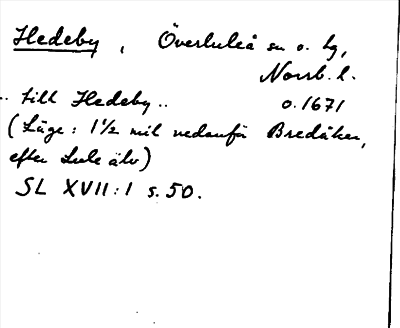 Hedeby, Överluleå sn o. hg,
Norrb. l.
.. till Hedeby.. o. 1671
(Läge: 1½ mil nedanför Bredåker,
efter Lule älv)
SL XVII:1 s. 50.